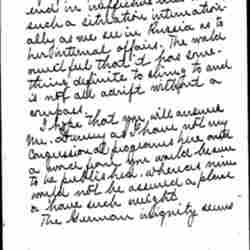 and in
such a situation internation-
ally as we see in Russia as to
her internal affairs. The world
needful that it has some-
thing definite to cling to and
is not all adrift without a
compass.
I hope that you will answer
Mr. as I have not my
Congressional programs here and
a word from you would have
to be published whereas mine
would not be assured a place
or have such weight.
The German indignity seems